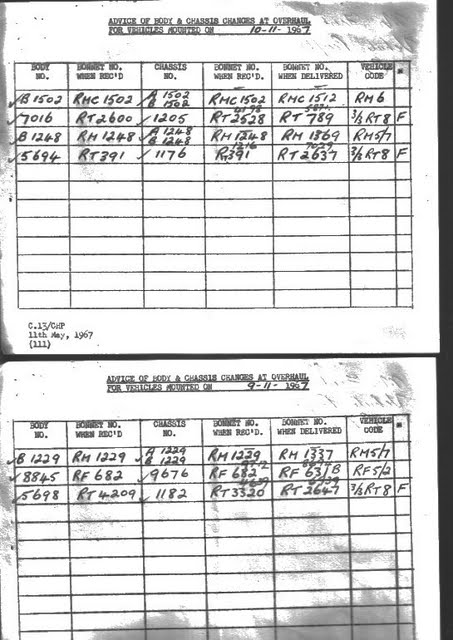 ADVICE OF BODY & CHASSIS CHANGES AT OVERHAUL
FOR VEHICLES MOUNTED ON 10-11-1967
BODY NO. BONNET NO. WHEN REC'D CHASSIS NO. BONNET NO. WHEN REC'D. BONNET NO. WHEN DELIVERED VEHICLE CODE *
✓B1502 RMC 1502 ✓A 1502 B 1502 RMC1502 RMC 1512 RM6
✓7016 RT2600 ✓1205 RT2528 RT 789 3/8 RT8 F
✓B1248 RM 1248 ✓A 1248 B 1248 RM 1248 RM 1869 RM5/7
✓5694 RT391 ✓1176 1216 RT391 7029 RT 2637 3/8 RT8 F
C.13/CHP
11th May, 1967
(111)
ADVICE OF BODY & CHASSIS CHANGES AT OVERHAUL
FOR VEHICLES MOUNTED ON 9-11-1967
BODY NO. BONNET NO. WHEN REC'D CHASSIS NO. BONNET NO. WHEN REC'D. BONNET NO. WHEN DELIVERED VEHICLE CODE *
✓B1229 RM 1229 ✓A 1229 B 1229 RM 1229 RM 1337 RM5/7
✓8845 RF 682 ✓9676 RF 682 RF 631B RF5/2
✓5698 RT 4209 ✓1182 4639 RT3320 RT 2647 3/8 RT8 F